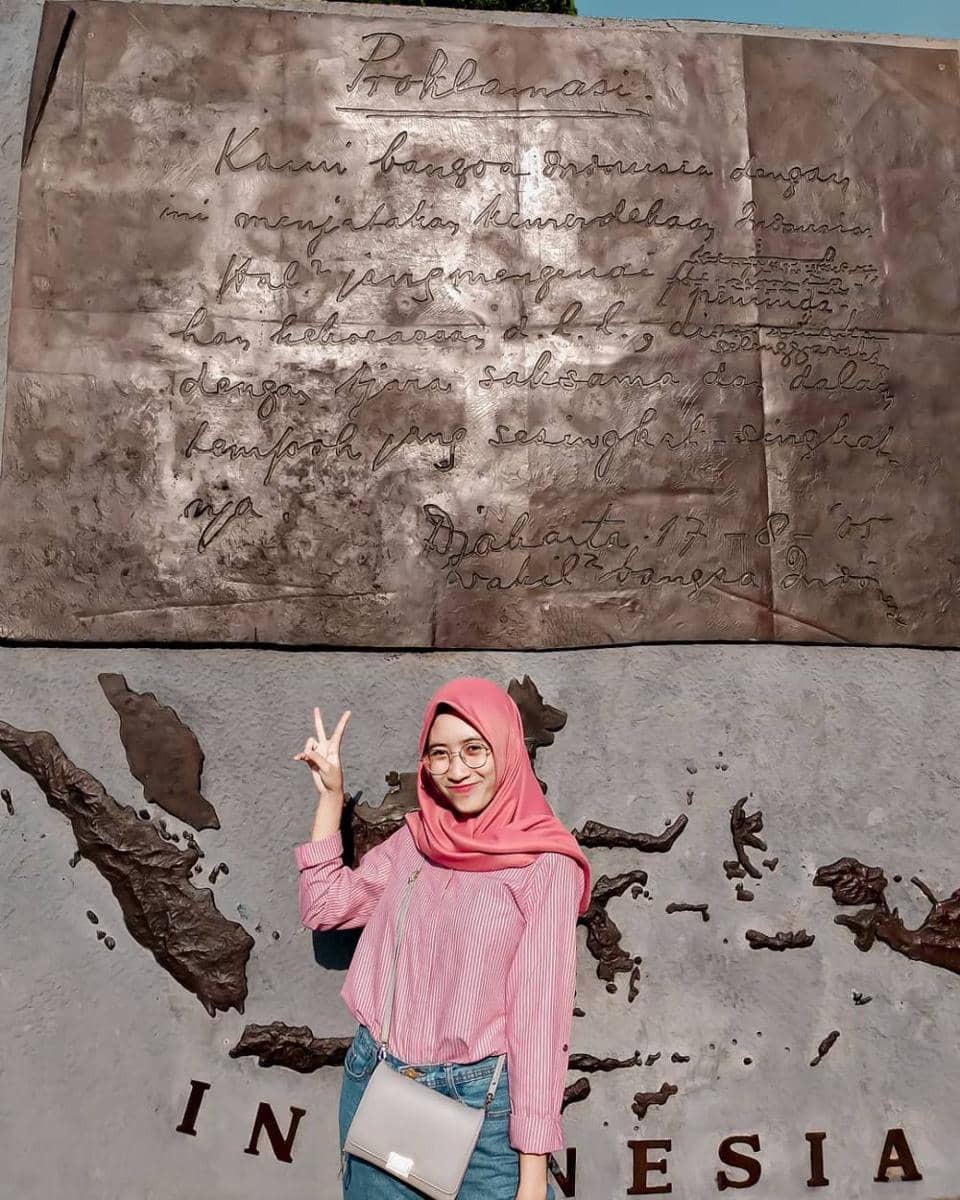 Proklamasi.
Kami bangsa Indonesia dengan
ini menjatakan kemerdekaan Indonesia.
Hal² jang mengenai
peminda-
han kekoeasaan d.l.l.,
diselenggarakan
dengan tjara saksama dan dalam
tempoh jang sesingkat-singkat-
nja.
Djakarta 17 - 8 - '05
Wakil² bangsa Indonesia
INDONESIA